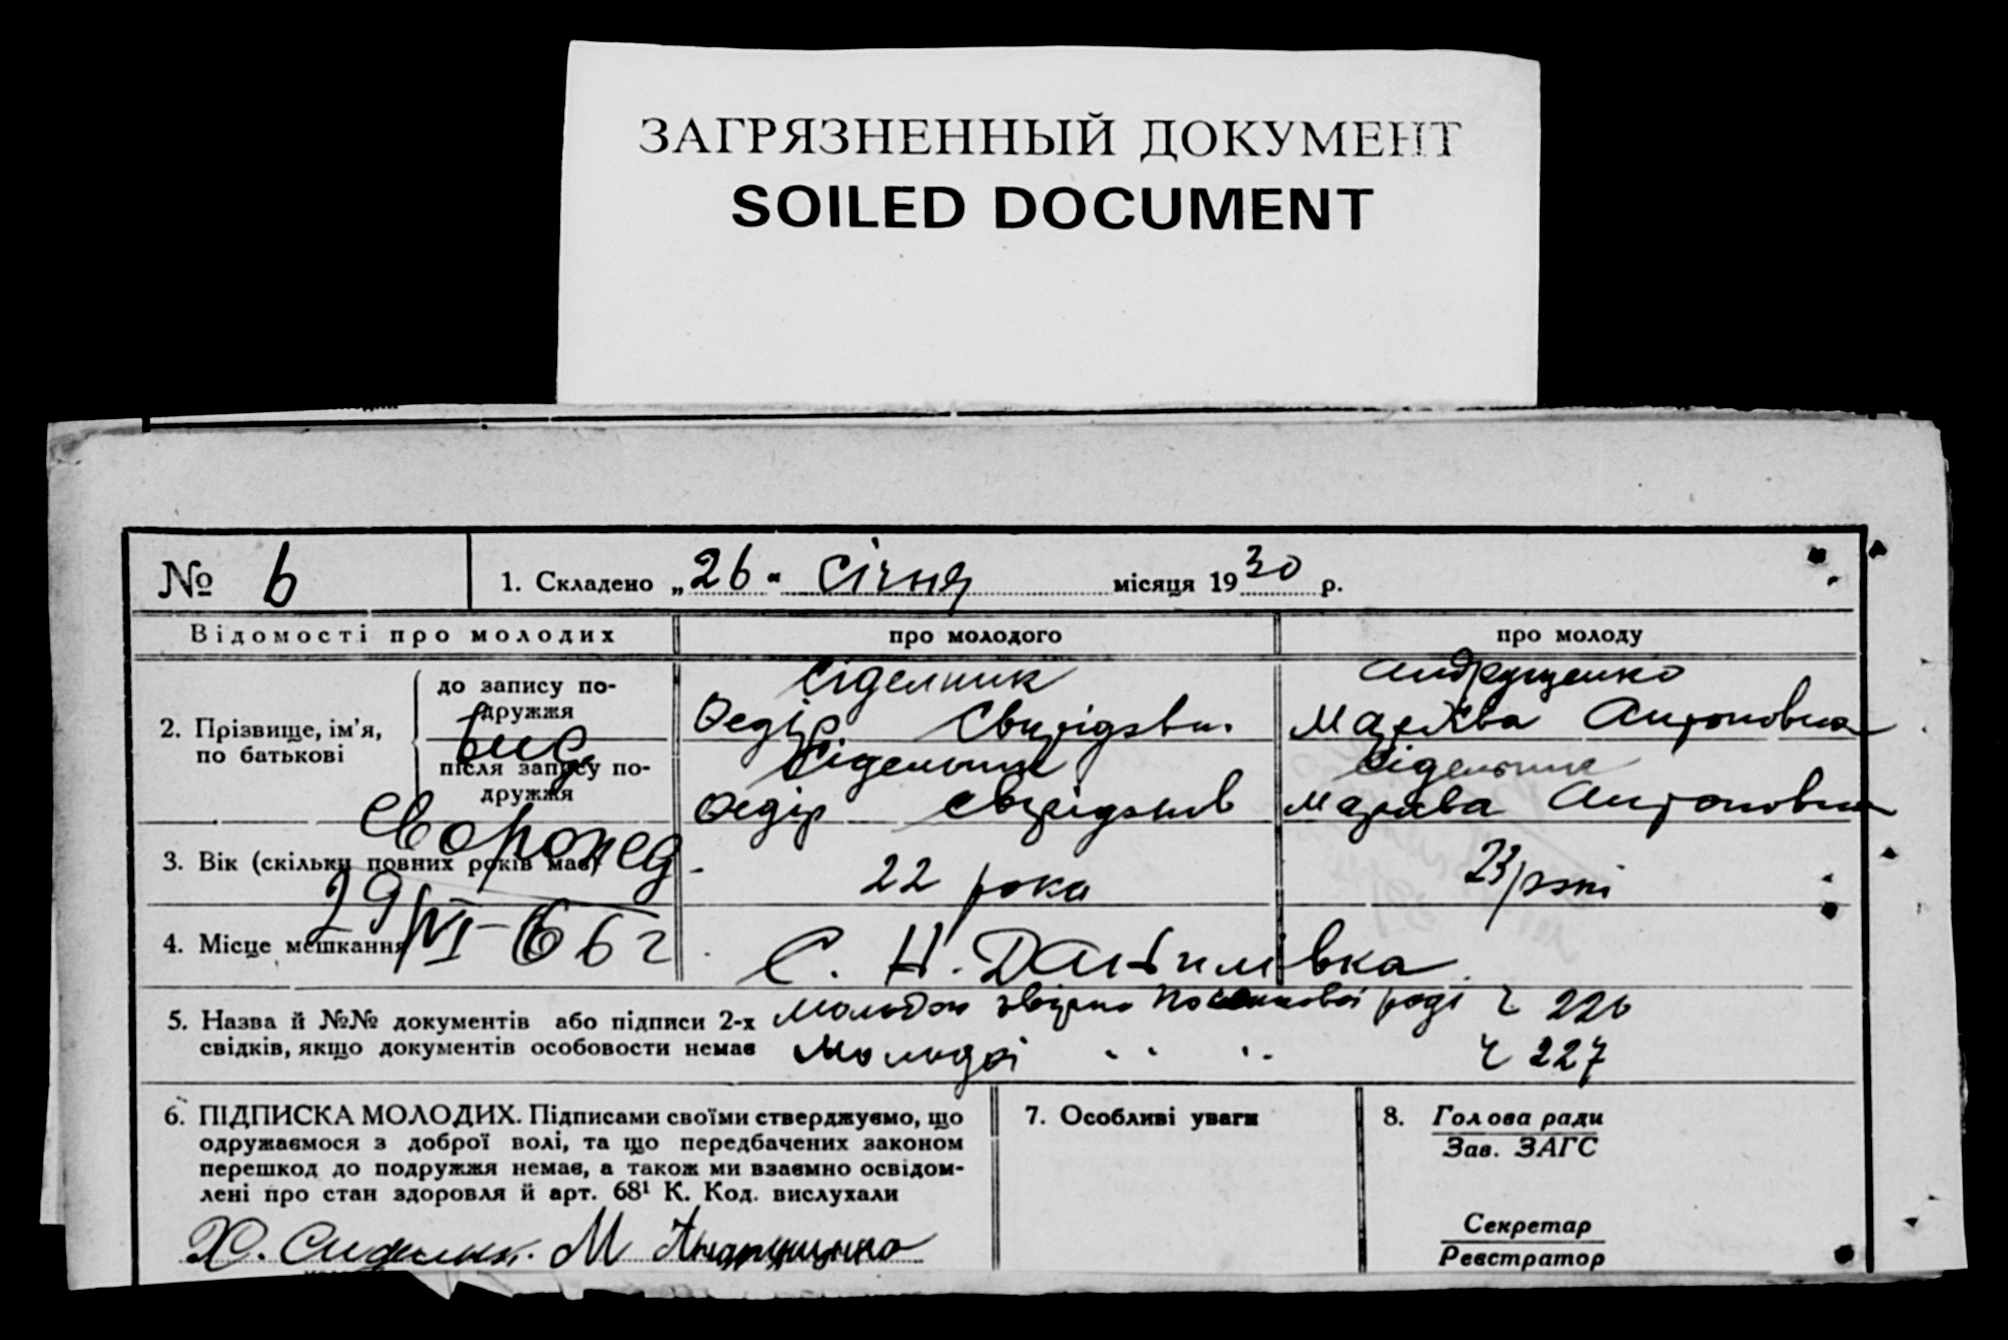 ЗАГРЯЗНЕННЫЙ ДОКУМЕНТ
SOILED DOCUMENT
№ 6
1. Складено „26" січня місяця 1930 р.
Відомості про молодих
про молодого
про молоду
2. Прізвище, ім'я, по батькові
до запису по-
дружжя
Сіделник
Федір Свирідови.
Андрущенко
Мархва Антоновна
після запису по-
дружжя
Сідельник
Федір Свирідов
Сідельник
Мархва Антоновна
3. Вік (скільки повних років має)
22 рока
23 рокі
29/VI-66 г
4. Місце мешкання
С. Н. Данилівка
5. Назва й №№ документів або підписи 2-х
свідків, якщо документів особовости немає
ч 226
Молодої " " ч 227
6. ПІДПИСКА МОЛОДИХ. Підписами своїми стверджуємо, що
одружаємося з доброї волі, та що передбачених законом
перешкод до подружжя немає, а також ми взаємно освідом-
лені про стан здоров'я й арт. 68¹ К. Код. вислухали
М Андрущенко
7. Особливі уваги
8. Голова ради
Зав. ЗАГС
Секретар
Реєстратор